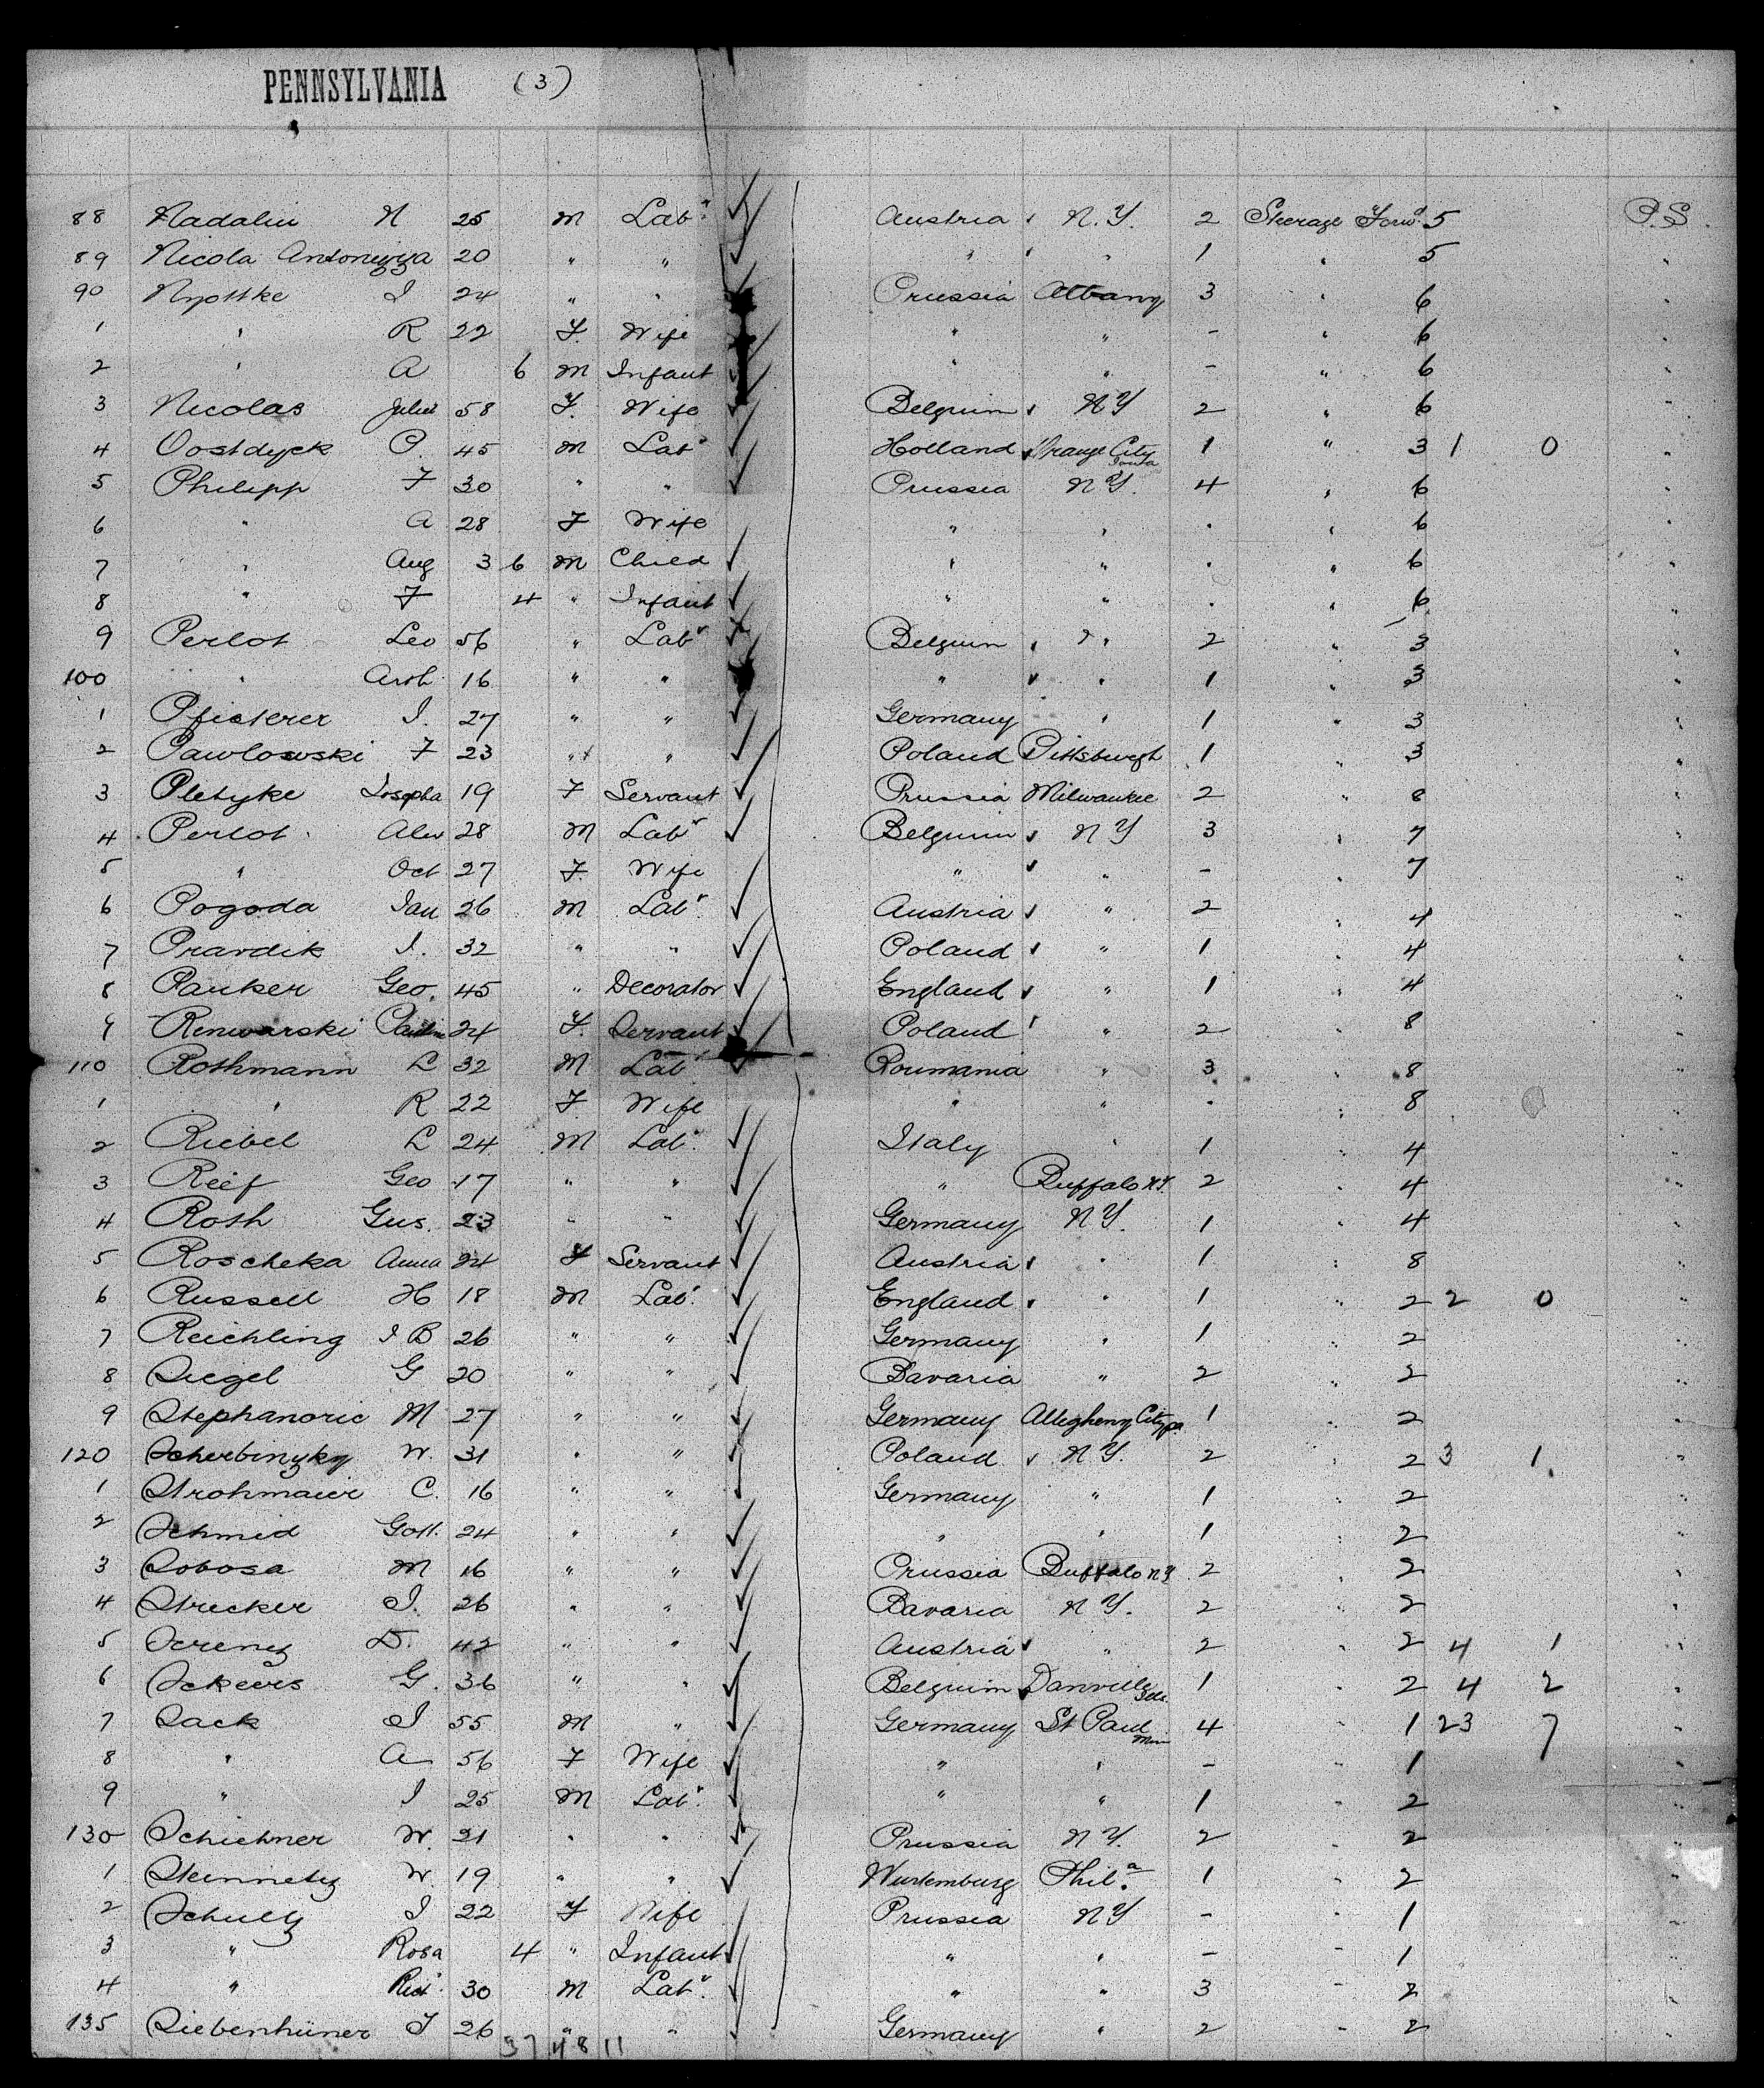 PENNSYLVANIA (3)
88 Nadalin N 25 M Labr Austria N.Y. 2 Steerage Forwd 5 P.S.
89 Nicola 20 " " " " 1 " 5 "
90 I 24 " " Prussia Albany 3 " 6 "
1 " R 22 F. Wife " " - " 6 "
2 " A 6 M Infant " " - " 6 "
3 Nicolas 58 F. Wife Belguim NY 2 " 6 "
4 Oostdyck P. 45 M Labr Holland Orange City Iowa 1 " 3 1 0 "
5 Philipp F 30 " " Prussia NY. 4 " 6 "
6 " A 28 F Wife " " " " 6 "
7 " Aug 3 6 M Child " " " " 6 "
8 " F 4 " Infant " " " " 6 "
9 Perlot Leo 56 " Labr Belguim " 2 " 3 "
100 " Arth 16 " " " " 1 " 3 "
1 Pfisterer I. 27 " " Germany " 1 " 3 "
2 Pawlowski F 23 " " Poland Pittsburgh 1 " 3 "
3 Pletyke Josepha 19 F Servant Prussia Milwaukee 2 " 8 "
4 Perlot Alex 28 M Labr Belguim NY 3 " 7 "
5 " Oct 27 F. Wife " " - " 7 "
6 Pogoda Jan 26 M Labr. Austria " 2 " 4 "
7 Pravdik I. 32 " " Poland " 1 " 4 "
8 Panker Geo. 45 " Decorator England " 1 " 4 "
9 Renwarski 24 F. Servant Poland " 2 " 8 "
110 Rothmann L 32 M Labr Roumania " 3 " 8 "
1 " R 22 F. Wife " " " " 8 "
2 Riebel L 24 M Labr. Italy " 1 " 4 "
3 Reif Geo 17 " " " Buffalo NY. 2 " 4 "
4 Roth Gus. 23 " " Germany NY. 1 " 4 "
5 Roscheka Anna 24 F Servant Austria " 1 " 8 "
6 Russell H 18 M Labr. England " 1 " 2 2 0 "
7 Reichling I B 26 " " Germany " 1 " 2 "
8 Siegel G 20 " " Bavaria " 2 " 2 "
9 Stephanoric M 27 " " Germany Allegheny City pa 1 " 2 "
120 Scherbinzky W. 31 " " Poland NY. 2 " 2 3 1 "
1 Strohmaier C. 16 " " Germany " 1 " 2 "
2 Schmid Gott. 24 " " " " 1 " 2 "
3 Sobosa M 16 " " Prussia Buffalo NY 2 " 2 "
4 Strecker I. 26 " " Bavaria NY. 2 " 2 "
5 D. 42 " " Austria " 2 " 2 4 1 "
6 G. 36 " " Belguim Danville Ills. 1 " 2 4 2 "
7 Sack I 55 M " Germany St Paul Minn 4 " 1 23 7 "
8 " A 56 F Wife " " - " 1 "
9 " I 25 M Labr. " " 1 " 2 "
130 W. 21 " " Prussia NY. 2 " 2 "
1 Steinnetz W. 19 " " Wurtemburg Phila. 1 " 2 "
2 Schultz I 22 F Wife Prussia NY - " 1 "
3 " Rosa 4 " Infant " " - " 1 "
4 " 30 M Labr. " " 3 " 2 "
135 Siebenhüner J 26 " " Germany " 2 " 2 "